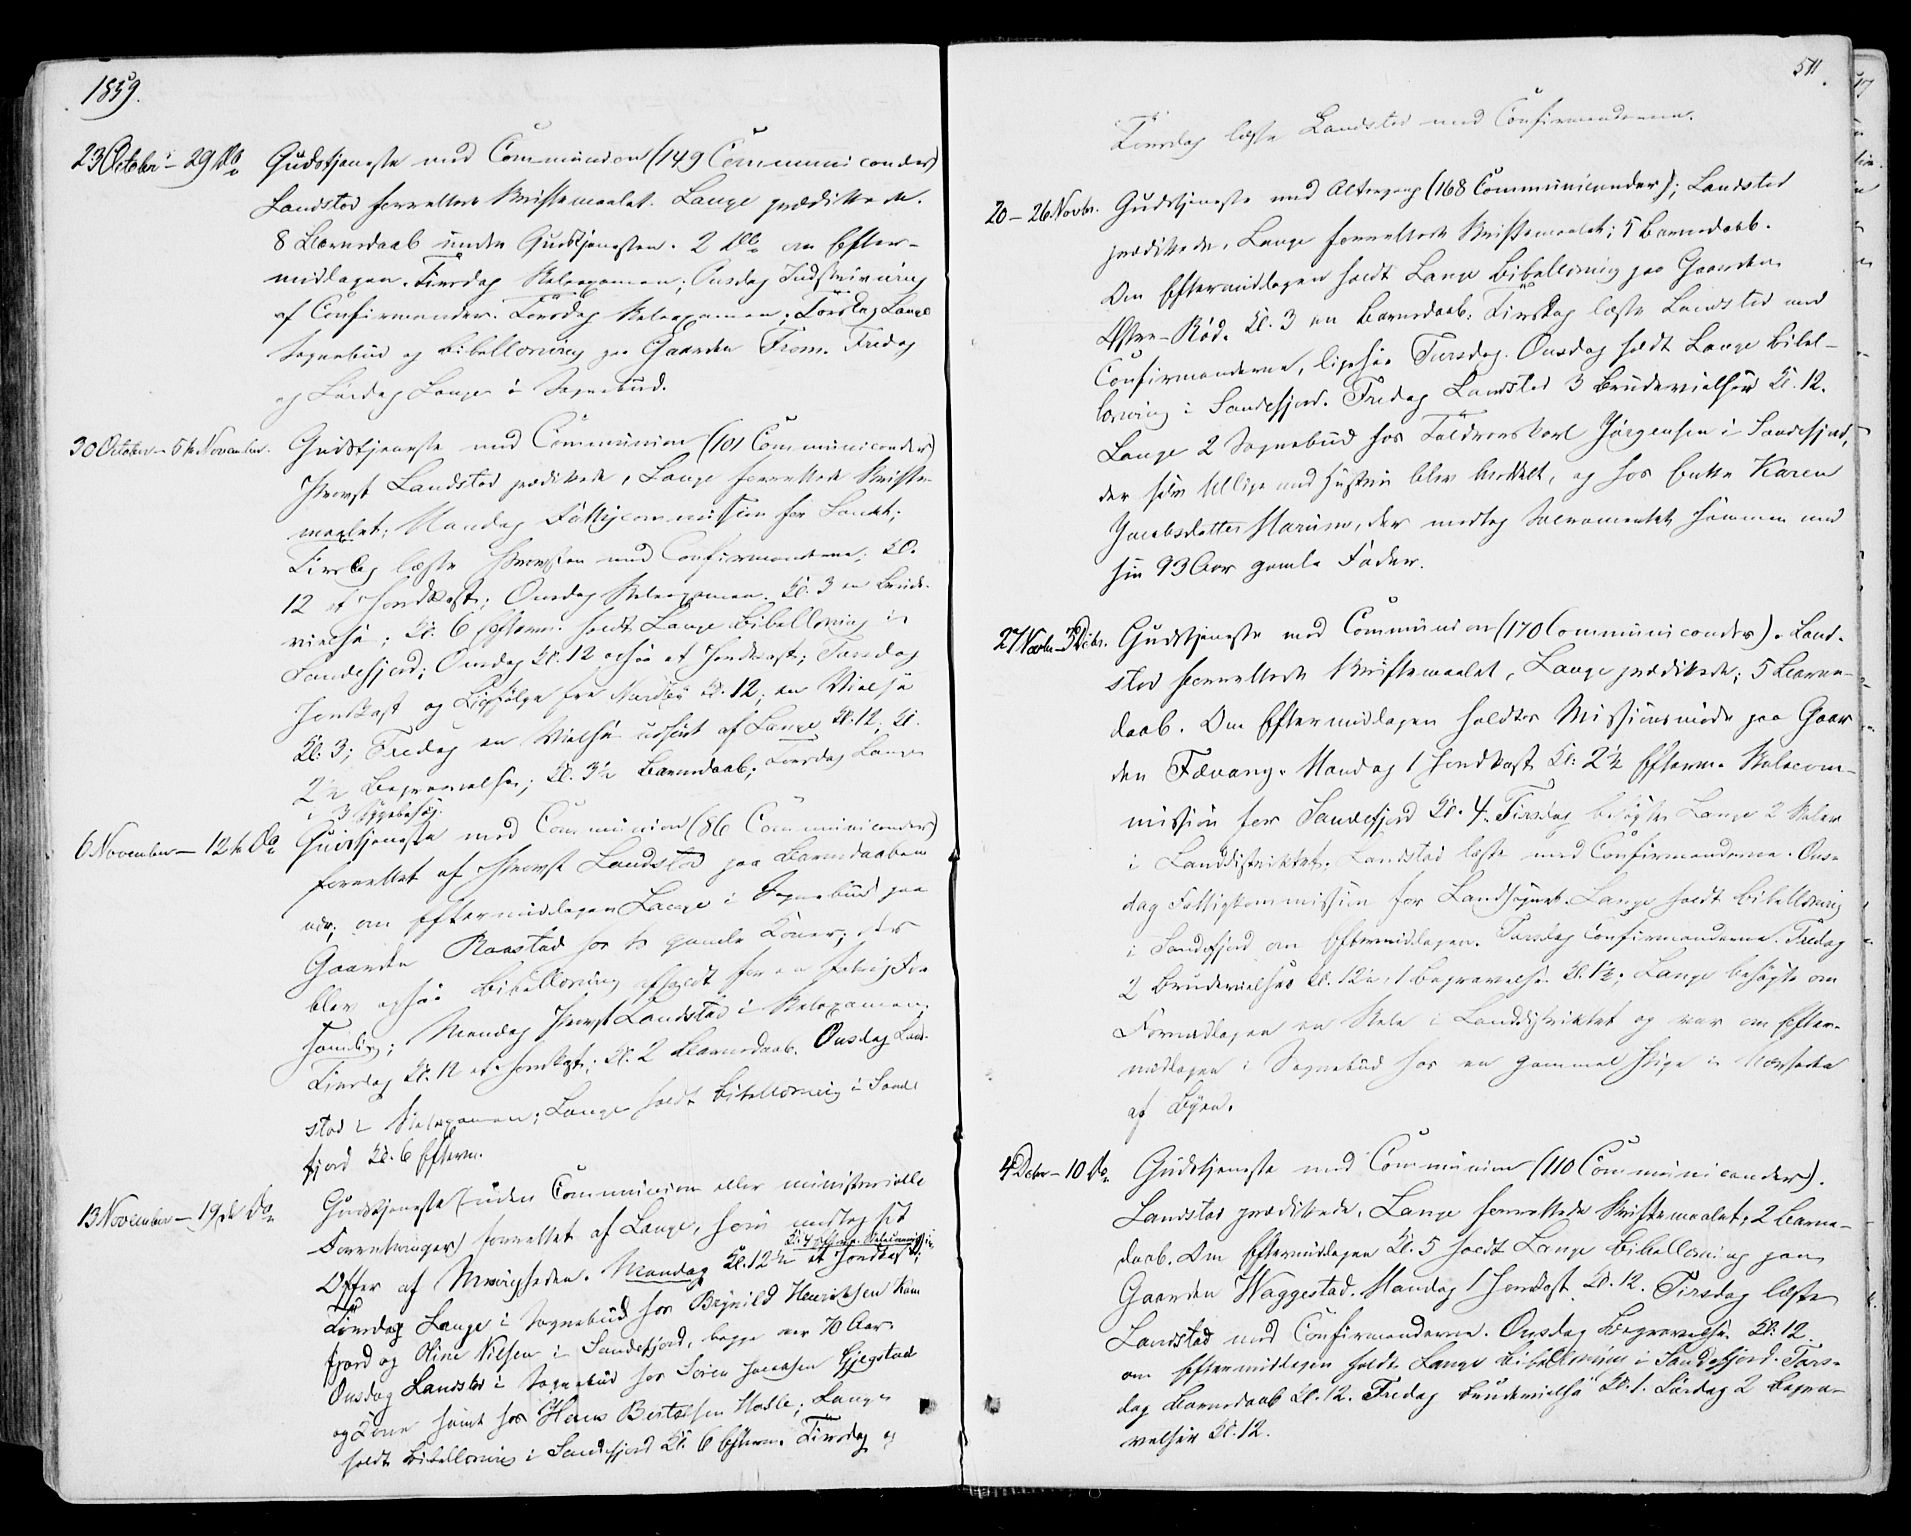 1859.
23 October - 29 do
Gudstjeneste med Communion (149 Communicander)
Landstad forrettede Skriftemaalet. Lange prædikede.
8 Barnedaab under Gudstjenesten. 2 do om Efter-
middagen. Tirsdag Skoleexamen; Onsdag Indskrivning
af Confirmander. Torsdag Skoleexamen; Torsdag Lange
Sognebud og Bibellæsning paa Gaarden Fræm. Fredag
og Lørdag Lange i Sognebud.
30 October - 5te November.
Gudstjeneste med Communion (101 Communicander)
Provst Landstad prædikede, Lange forrettede Skrifte-
maalet; Mandag Fattigcommission for Landet;
Tirsdag læste Provsten med Confirmanderne; Kl.
12 et Jordkast; Onsdag Skoleexamen. Kl. 3 en Brude-
vielse; Kl. 6 Efterm. holdt Lange Bibellæsning i
Sandefjord; Onsdag Kl. 12 også et Jordkast; Torsdag
Jordkast og Ligfølge fra Kl. 12; en Vielse
Kl. 3; Fredag en Vielse udført af Lange Kl. 12, Kl.
2½ Begravelse; Kl. 3½ Barnedaab; Lørdag Lange
i 3 Sygebesøg.
6 November - 12te do
Gudstjeneste med Communion (86 Communicander)
forrettet af Provst Landstad paa Barnedaaben
nær; om Eftermiddagen Lange i Sognebud paa
Gaarden Raastad hos to gamle Koner; der
blev også Bibellæsning afholdt for en talrig For-
samling; Mandag Provst Landstad i Skoleexamen;
Tirsdag Kl. 12 et Jordkast; Kl. 2 Barnedaab. Onsdag Land-
stad i Skoleexamen; Lange holdt Bibellæsning i Sande
fjord Kl. 6 Efterm.
13 November - 19de do
Gudstjeneste (uden Communion eller ministerielle
Forretninger) forrettet af Lange, som modtog sit
Offer af Menigheden. Mandag Kl. 12½ et Jordkast;
Kl. 4 Efterm.
Tirsdag Lange i Sognebud hos Brynild Henriksen Kam
fjord og Oline Nielsen i Sandefjord, begge over 70 Aar.
Onsdag Landstad i Sognebud hos Sören Jacobsen Gjegstad
og Kone samt hos Hans Bertelsen Hasle; Lange
holdt Bibellæsning i Sandefjord Kl. 6 Efterm. Tirsdag og
511
Torsdag læste Landstad med Confirmanderne.
20 - 26 Novbr.
Gudstjeneste med Altergang (168 Communicander); Landstad
prædikede, Lange forrettede Skriftemaalet; 5 Barnedaab.
Om Eftermiddagen holdt Lange Bibellæsning paa Gaarden
Østre-Röd. Kl. 3 en Barnedaab; Tirsdag læste Landstad med
Confirmanderne, ligesaa Torsdag. Onsdag holdt Lange Bibel-
læsning i Sandefjord. Fredag Landstad 3 Brudevielser Kl. 12.
Lange 2 Sognebud hos Toldvæsskarl Jörgensen i Sandefjord,
der selv tillige med Hustru blev betient, og hos Enke Karen
Jacobsdatter Marum, der modtog Sacramentet sammen med
sin 93 Aar gamle Fader.
27 Novbr - 3 Decbr.
Gudstjeneste med Communion (170 Communicander). Land-
stad forrettede Skriftemaalet, Lange prædikede; 5 Barne-
daab. Om Eftermiddagen holdtes Missionsmöde paa Gaar
den Fævang. Mandag 1 Jordkast Kl. 2½ Efterm. Skolecom-
mission for Sandefjord Kl. 4. Tirsdag besøgte Lange 2 Skoler
i Landdistriktet, Landstad læste med Confirmanderne. Ons-
dag Fattigkommission for Landsognet. Lange holdt Bibellæsning
i Sandefjord om Eftermiddagen. Torsdag Confirmanderne. Fredag
2 Brudevielser Kl. 12 og 1 Begravelse Kl. 1½; Lange besögte om
Formiddagen en Skole i Landdistriktet og var om Efter-
middagen i Sognebud hos en gammel Pige i Nærheden
af Byen.
4 Decbr - 10 do
Gudstjeneste med Communion (110 Communicander).
Landstad prædikede, Lange forrettede Skriftemaalet, 2 Barne-
daab. Om Eftermiddagen Kl. 5 holdt Lange Bibellæsning paa
Gaarden Waggestad. Mandag 1 Jordkast Kl. 12. Tirsdag læste
Landstad med Confirmanderne. Onsdag Begravelse Kl. 12.
om Eftermiddagen holdt Lange Bibellæsning i Sandefjord. Tors-
dag Barnedaab Kl. 12. Fredag Brudevielse Kl. 1. Lördag 2 Begra-
velser Kl. 12.